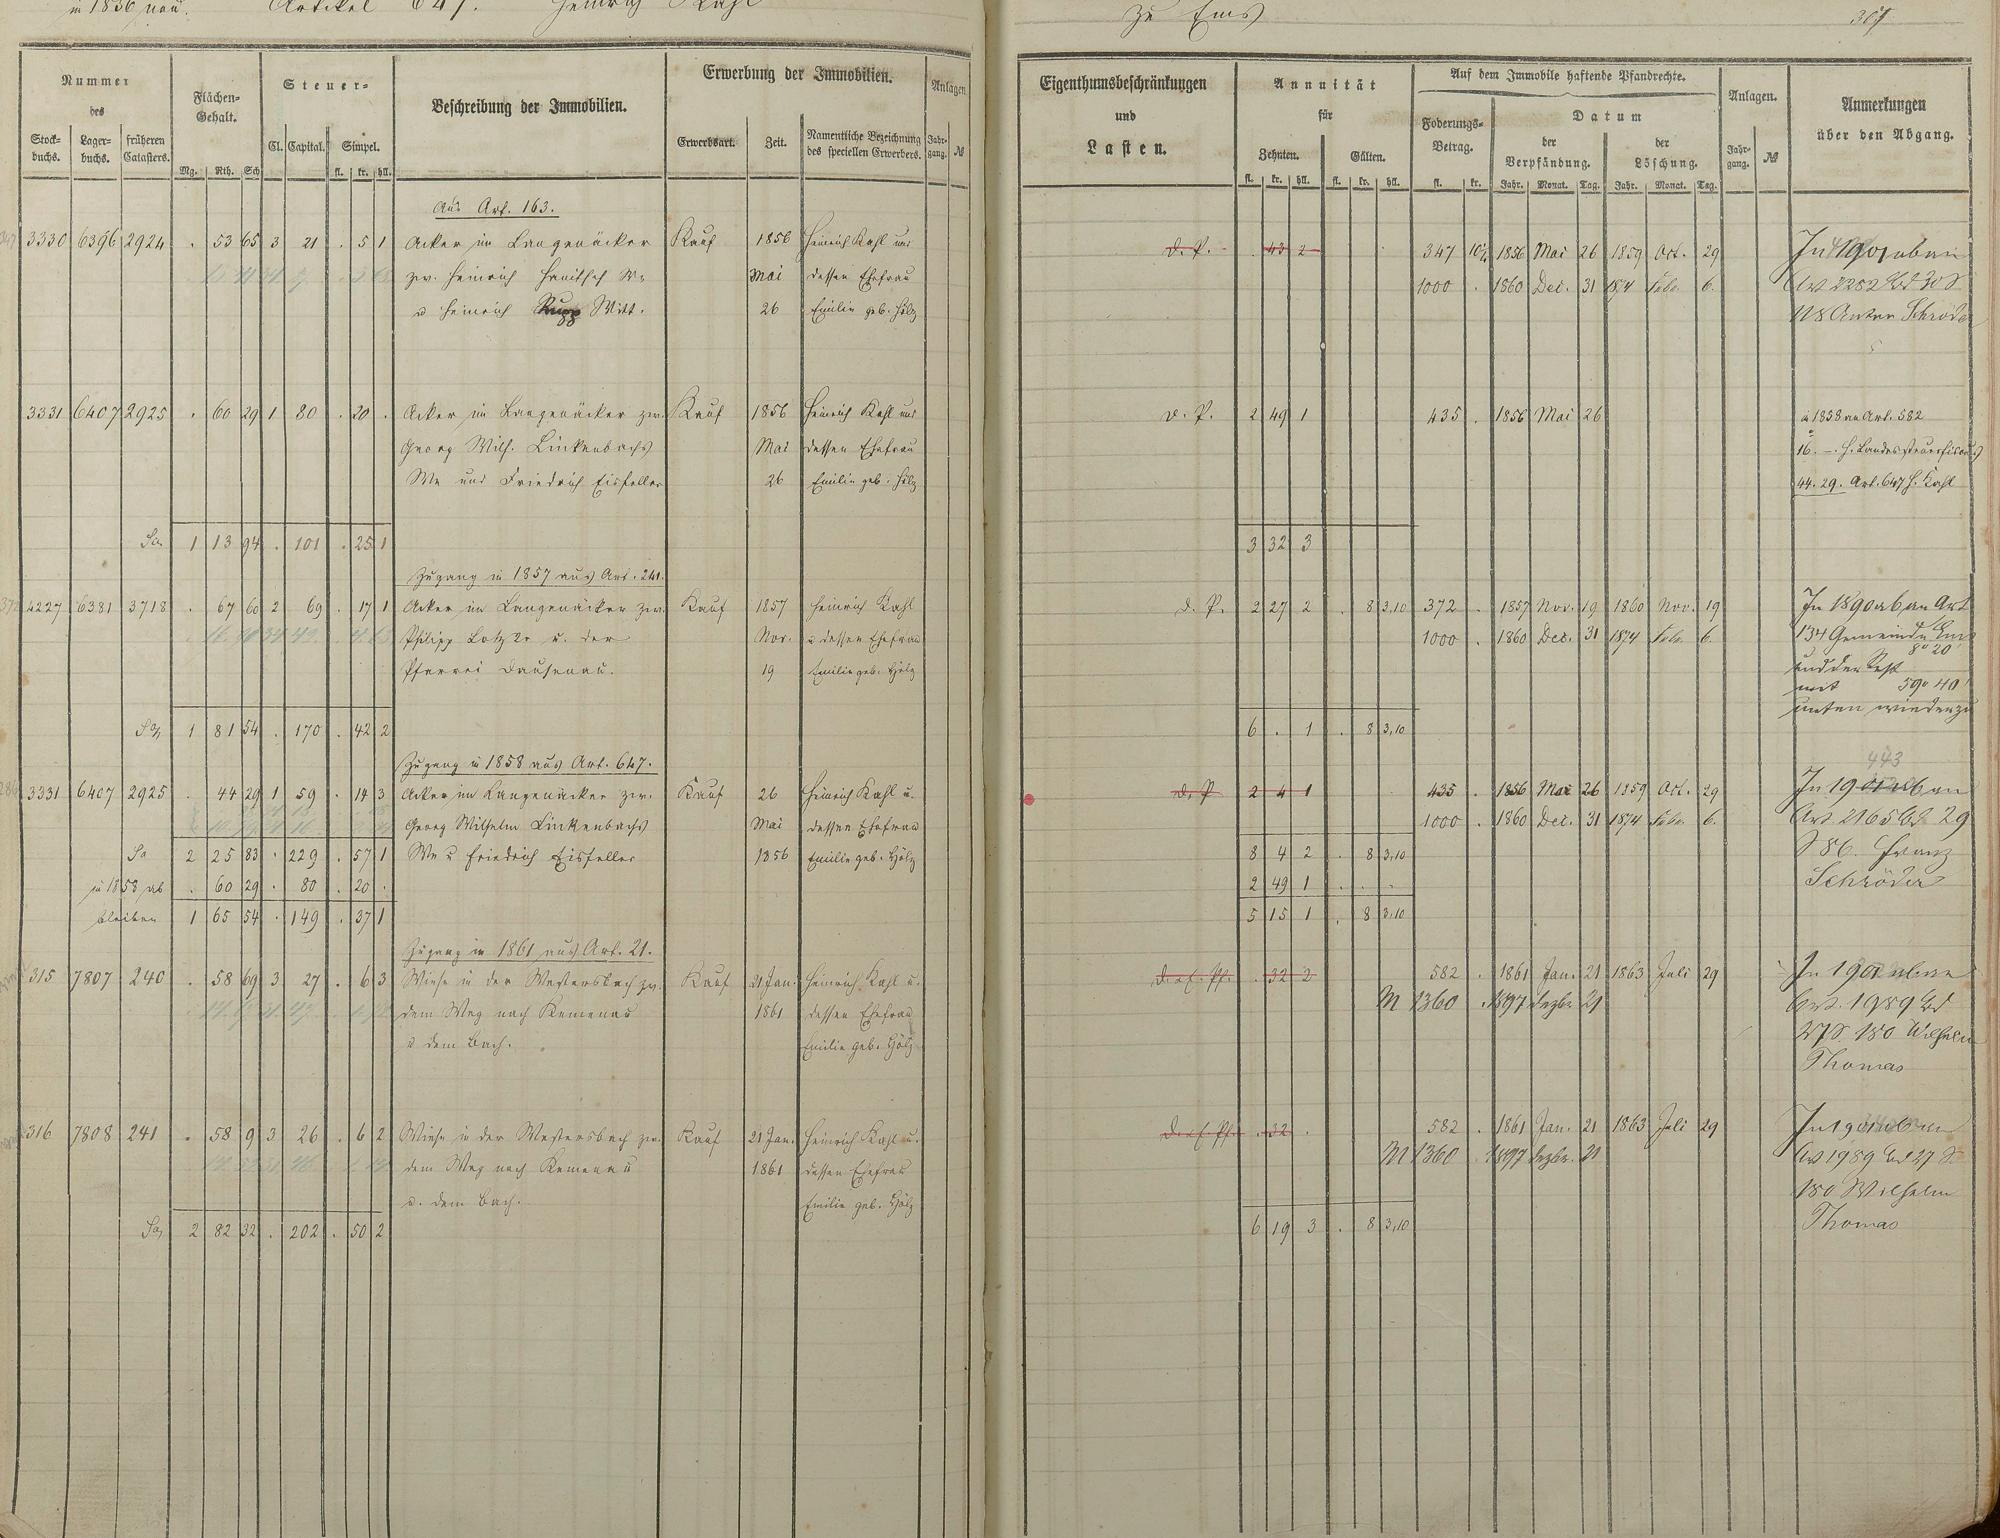 in 1856 neu. Artikel 647. Heinrich Kahl
Nummer
des
Stock-
buchs.
Lager-
buchs.
früheren
Catasters.
Flächen-
Gehalt.
Mg. Rth. Sch
Steuer-
Cl. Capital. Simpel.
fl. kr. hll.
Beschreibung der Immobilien.
Erwerbung der Immobilien.
Erwerbsart. Zeit.
Namentliche Bezeichnung
des speciellen Erwerbers.
Anlagen
Jahr-
gang. №
Aus Art. 163.
3330 6396 2924 . 53 65 3 21 . 5 1 Acker im Langenäcker Kauf 1856 Heinrich Kahl und
zw. Heinrich We Mai dessen Ehefrau
u Heinrich Witt. 26 Emilie geb. Hölz
3331 6407 2925 . 60 29 1 80 . 20 . Acker im Langenäcker zw. Kauf 1856 Heinrich Kahl und
Georg Wilh. Linkenbachs Mai dessen Ehefrau
We und Friedrich Eisfeller 26 Emilie geb. Hölz
Sa 1 13 94 . 101 . 25 1
Zugang in 1857 aus Art. 241.
4227 6381 3718 . 67 60 2 69 . 17 1 Acker im Langenäcker zw. Kauf 1857 Heinrich Kahl
Philipp u. der Nov. u dessen Ehefrau
Pfarrei Dausenau. 19 Emilie geb. Hölz
Sa 1 81 54 . 170 . 42 2
Zugang in 1858 aus Art. 647.
3331 6407 2925 . 44 29 1 59 . 14 3 Acker im Langenäcker zw. Kauf 26 Heinrich Kahl u.
Georg Wilhelm Linkenbachs Mai dessen Ehefrau
Sa 2 25 83 . 229 . 57 1 We u Friedrich Eisfeller 1856 Emilie geb. Hölz
in 1858 ab . 60 29 . 80 . 20 .
bleiben 1 65 54 . 149 . 37 1
Zugang in 1861 aus Art. 21.
315 7807 240 . 58 69 3 27 . 6 3 Wiese in der Westersbach zw. Kauf 21 Jan. Heinrich Kahl u.
dem Weg nach Kemenau 1861 dessen Ehefrau
u dem Bach. Emilie geb. Hölz
316 7808 241 . 58 9 3 26 . 6 2 Wiese in der Westersbach zw. Kauf 21 Jan. Heinrich Kahl u.
dem Weg nach Kemenau 1861 dessen Ehefrau
u. dem Bach. Emilie geb. Hölz
Sa 2 82 32 . 202 . 50 2
zu Ems
Eigenthumsbeschränkungen
und
Lasten.
Annuität
für
Zehnten. Gülten.
fl. kr. hll. fl. kr. hll.
Auf dem Immobile haftende Pfandrechte.
Foderungs-
Betrag.
fl. kr.
Datum
der
Verpfändung.
der
Löschung.
Jahr. Monat. Tag. Jahr. Monat. Tag.
Anlagen.
Jahr-
gang. №
Anmerkungen
über den Abgang.
d. P. . 43 2 347 1856 Mai 26 1859 Oct. 29 In 1901 ab an
1000 . 1860 Dec. 31 1874 Febr. 6. Art 2282 Bd 30 S
Anton Schröder
d. P. 2 49 1 435 . 1856 Mai 26 in 1858 an Art. 582
16. —. H. Landessteuerfiscus
44. 29. Art. 647 H. Kahl
3 32 3
d. P. 2 27 2 . 8 3,10 372 . 1857 Nov. 19 1860 Nov. 19 In 1890 ab an Art
1000 . 1860 Dec. 31 1874 Febr. 6. 134 Gemeinde Ems
8 20
und der Rest
mit 59 40
unten wieder zu
6 . 1 . 8 3,10
443
d. P. 2 4 1 435 . 1856 Mai 26 1859 Oct. 29 In 1901 ab an
1000 . 1860 Dec. 31 1874 Febr. 6. Art 2165 Bd 29
8 4 2 . 8 3,10 S 86. Franz
2 49 1 . . . Schröder
5 15 1 . 8 3,10
. 32 2 582 . 1861 Jan. 21 1863 Juli 29 In 1901 ab an
M 1360 . 1897 Dezbr. 21 Art. 1989 Bd
27 S. 180 Wilhelm
Thomas
. 32 . 582 . 1861 Jan. 21 1863 Juli 29 In 1901 ab an
M 1360 . 1897 Dezbr. 21 Art 1989 Bd 27 S.
180 Wilhelm
6 19 3 . 8 3,10 Thomas